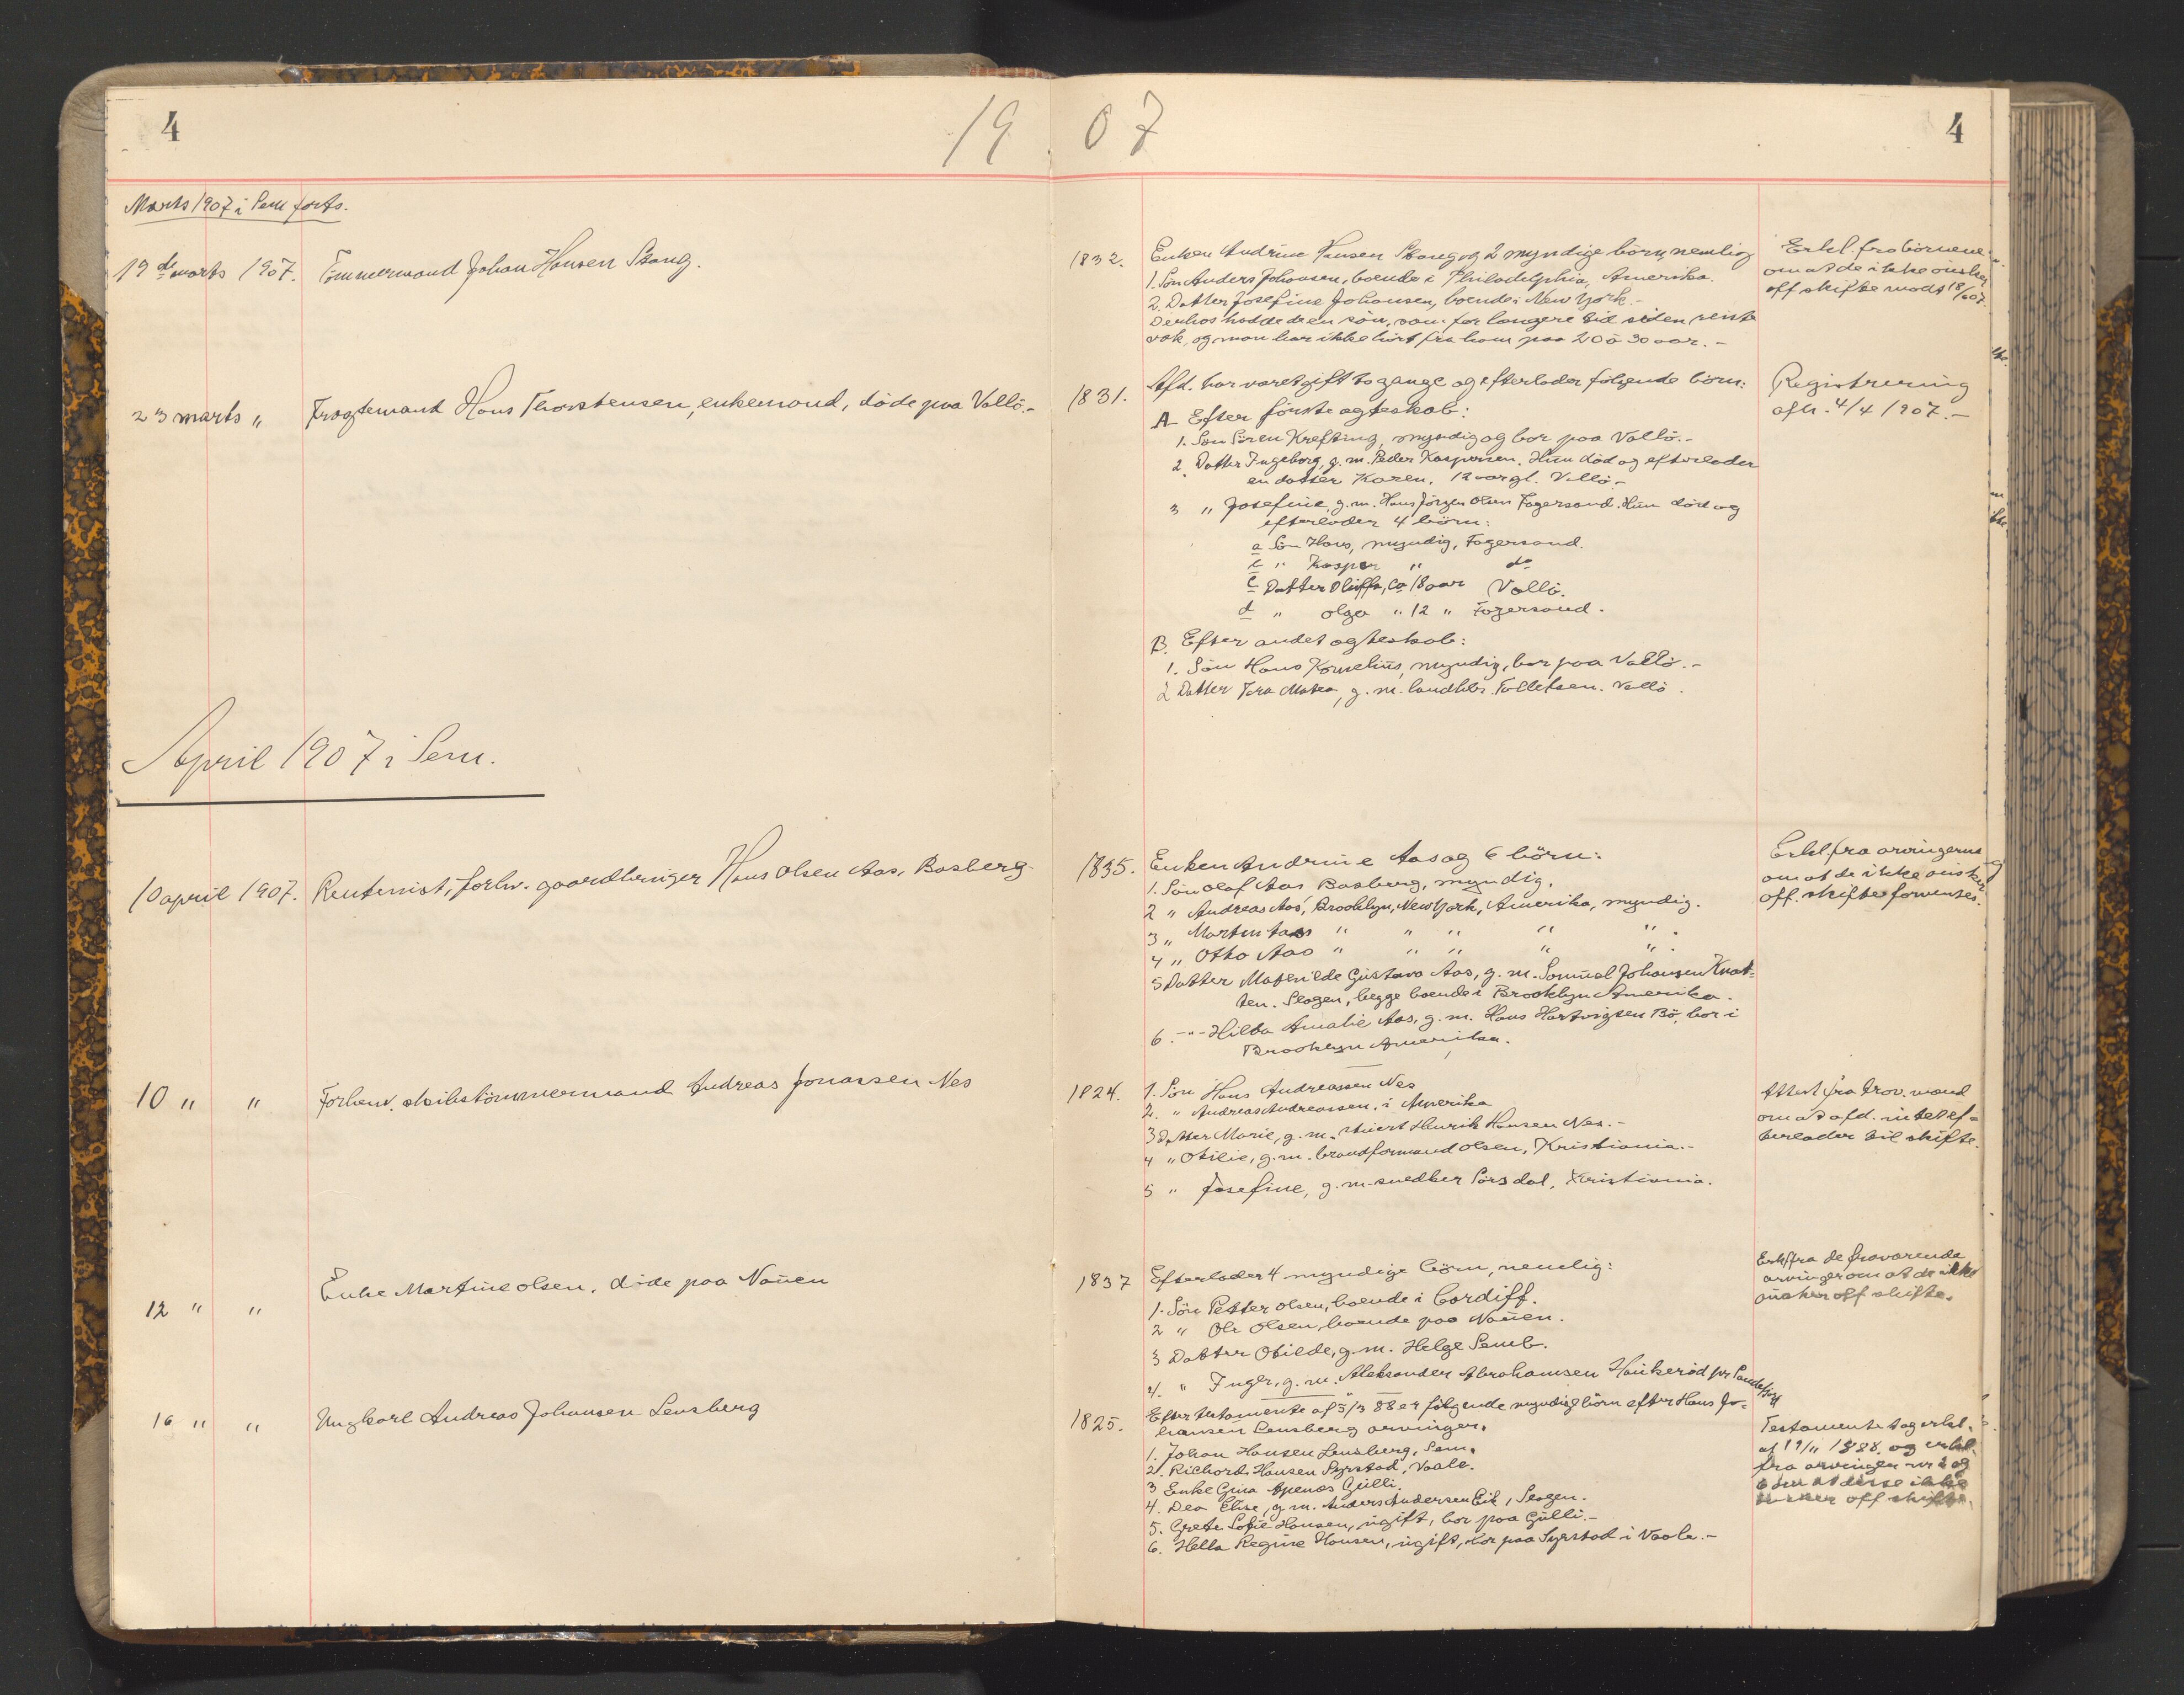 4
19 07
4
Marts 1907 i Sem forts.
19de marts 1907. Tömmermand Johan Hansen Stang.
1832.
Enken Andrine Hansen Stang og 2 myndige börn, nemlig
1. Sön Anders Johansen, boende i Philadelphia, Amerika.
2. Datter Josefine Johansen, boende i New York.-
Derhos hadde de en sön, som for længere tid siden reiste
væk, og man har ikke hört fra ham paa 20 à 30 aar.-
Erkl. fra börnene
om at de ikke önsker
off skifte modt 18/6 07.
23 marts " Fragtemand Hans Thorstensen, enkemand, döde paa Vallö.-
1831.
Afd. har været gift to gange og efterlader fölgende börn:
A Efter förste ægteskab:
1. Sön Sören Krefting, myndig og bor paa Vallö.-
2. Datter Ingeborg, g. m. Peder Kaspersen. Hun död og efterlader
en datter Karen, 12 aar gl. Vallö.-
3 " Josefine, g. m. Hans Jörgen Olsen Fagersand. Hun död og
efterlader 4 börn:
a Sön Hans, myndig, Fagersand.
b " Kasper " do
c Datter Oluffa, ca 18 aar Vallö.
d " Olga " 12 " Fagersand.
B. Efter andet ægteskab:
1. Sön Hans Kornelius, myndig, bor paa Vallö.-
2 Datter Tora Matea, g. m. landhdr. Tollefsen. Vallö.
Registrering
afh. 4/4 1907.-
April 1907 i Sem.
10 april 1907. Rentenist, forhv. gaardbruger Hans Olsen Aas, Basberg.
1835.
Enken Andrine Aas og 6 börn:
1. Sön Olaf Aas Basberg, myndig.
2 " Andreas Aas, Brooklyn, New York, Amerika, myndig.
3 " Martin Aas " " " " " .
4 " Otto Aas " " " " " .
5 Datter Mathilde Gustava Aas, g. m. Samuel Johansen Knat-
ten. Slagen, begge boende i Brooklyn Amerika.
6. -"- Hilda Amalie Aas, g. m. Hans Hartvigsen Bö, bor i
Brooklyn Amerika.
Erkl. fra arvingerne
om at de ikke önsker
off. skifte forventes.
10 " " Forhenv. skibstömmermand Andreas Jonassen Nes
1824.
1. Sön Hans Andreassen Nes
2. " Andreas Andreassen, i Amerika
3 Datter Marie, g. m. Henrik Hansen Nes.-
4 " Otilie, g. m. brandformand Olsen, Kristiania.-
5 " Josefine, g. m. snedker Sörsdal, Kristiania.
Attest fra prov. mand
om at afd. intet ef-
terlader til skifte.
12 " " Enke Martine Olsen, döde paa Nauen
1837
Efterlader 4 myndige börn, nemlig:
1. Sön Petter Olsen, boende i Cardiff.
2 " Ole Olsen, boende paa Nauen.
3 Datter Otilde, g. m. Helge Semb.
4. " Inger, g. m. Aleksander Abrahamsen Haukeröd pr Sandefjord
Erkl fra de fraværende
arvinger om at de ikke
önsker off skifte.
16 " " Ungkarl Andreas Johansen Lensberg
1825.
Efter testamente af 5/3 88 er fölgende myndige börn efter Hans Jo-
hansen Lensberg arvinger.
1. Johan Hansen Lensberg, Sem.
2. Richard Hansen Syrstad, Vaale.
3 Enke Gina Apenæs Gulli.
4. Dea Elise, g. m. Anders Andersen Eik, Slagen.
5. Grete Sofie Hansen, ugift, bor paa Gulli.-
6. Hella Regine Hansen, ugift, bor paa Syrstad i Vaale.-
Testamente tag erkl.
af 19/11 1888. og erkl.
fra arvingen nr 2 og
6 om at disse ikke
önsker off skifte.